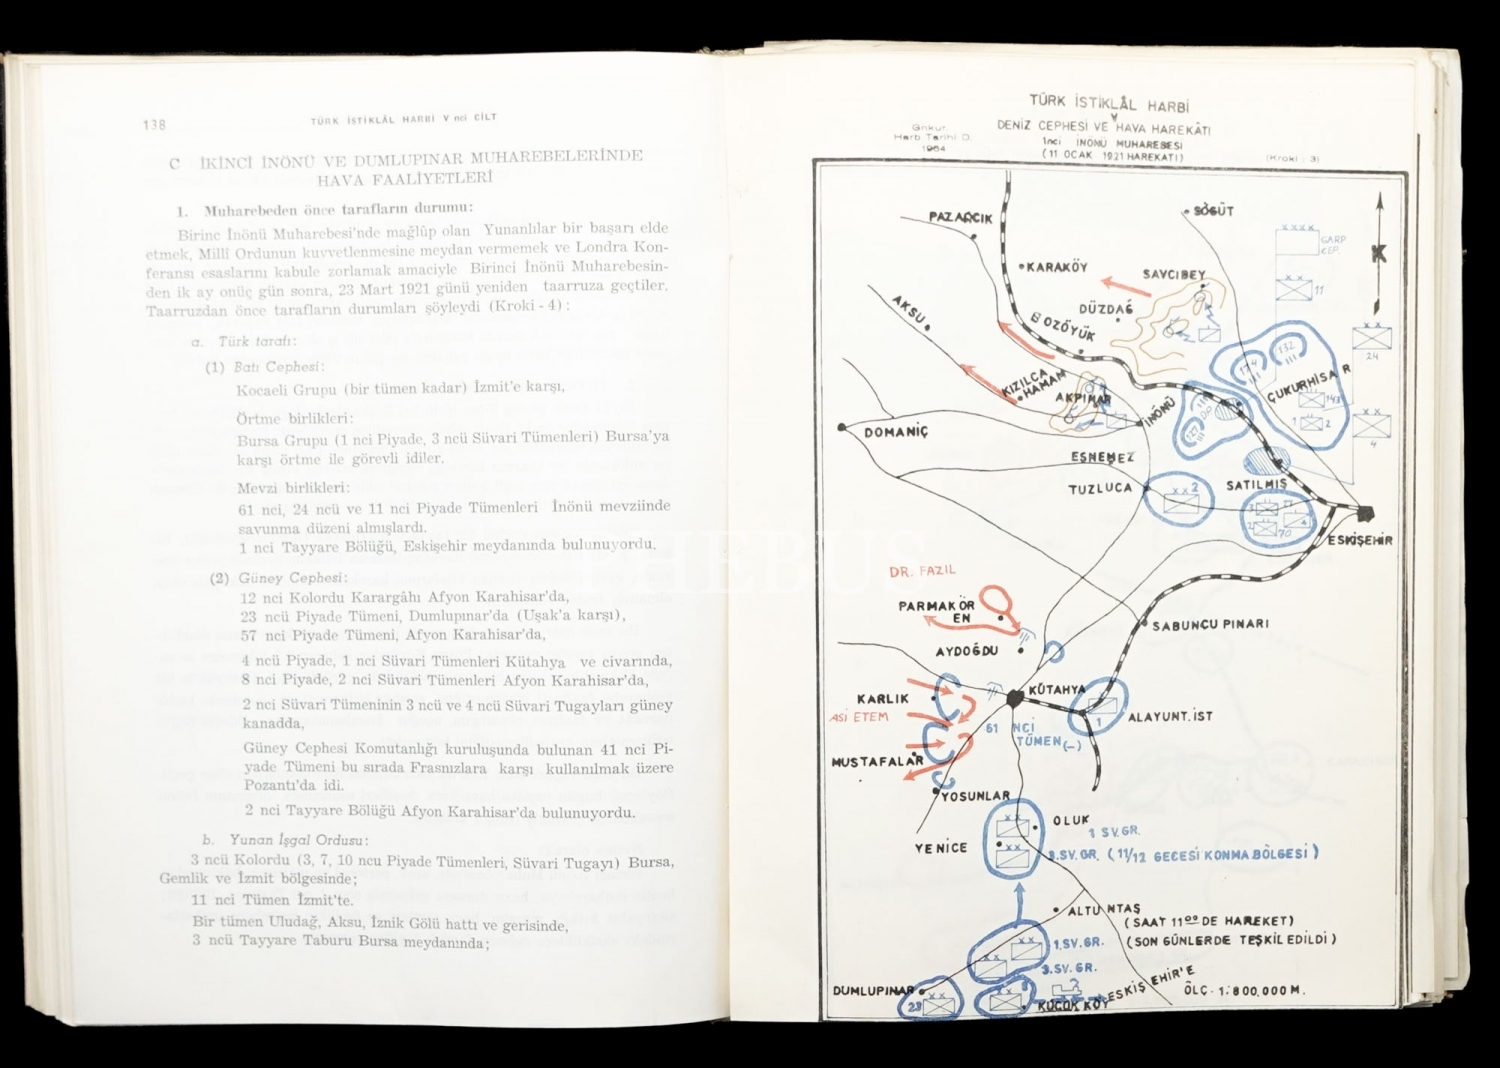 138
TÜRK İSTİKLÂL HARBİ V nci CİLT
C İKİNCİ İNÖNÜ VE DUMLUPINAR MUHAREBELERİNDE
HAVA FAALİYETLERİ
1. Muharebeden önce tarafların durumu:
Birinc İnönü Muharebesi'nde mağlûp olan Yunanlılar bir başarı elde
etmek, Millî Ordunun kuvvetlenmesine meydan vermemek ve Londra Kon-
feransı esaslarını kabule zorlamak amaciyle Birinci İnönü Muharebesin-
den ik ay onüç gün sonra, 23 Mart 1921 günü yeniden taarruza geçtiler.
Taarruzdan önce tarafların durumları şöyleydi (Kroki - 4) :
a. Türk tarafı:
(1) Batı Cephesi:
Kocaeli Grupu (bir tümen kadar) İzmit'e karşı,
Örtme birlikleri:
Bursa Grupu (1 nci Piyade, 3 ncü Süvari Tümenleri) Bursa'ya
karşı örtme ile görevli idiler.
Mevzi birlikleri:
61 nci, 24 ncü ve 11 nci Piyade Tümenleri İnönü mevziinde
savunma düzeni almışlardı.
1 nci Tayyare Bölüğü, Eskişehir meydanında bulunuyordu.
(2) Güney Cephesi:
12 nci Kolordu Karargâhı Afyon Karahisar'da,
23 ncü Piyade Tümeni, Dumlupınar'da (Uşak'a karşı),
57 nci Piyade Tümeni, Afyon Karahisar'da,
4 ncü Piyade, 1 nci Süvari Tümenleri Kütahya ve civarında,
8 nci Piyade, 2 nci Süvari Tümenleri Afyon Karahisar'da,
2 nci Süvari Tümeninin 3 ncü ve 4 ncü Süvari Tugayları güney
kanadda,
Güney Cephesi Komutanlığı kuruluşunda bulunan 41 nci Pi-
yade Tümeni bu sırada Frasnızlara karşı kullanılmak üzere
Pozantı'da idi.
2 nci Tayyare Bölüğü Afyon Karahisar'da bulunuyordu.
b. Yunan İşgal Ordusu:
3 ncü Kolordu (3, 7, 10 ncu Piyade Tümenleri, Süvari Tugayı) Bursa,
Gemlik ve İzmit bölgesinde;
11 nci Tümen İzmit'te.
Bir tümen Uludağ, Aksu, İznik Gölü hattı ve gerisinde,
3 ncü Tayyare Taburu Bursa meydanında;
TÜRK İSTİKLÂL HARBİ
V
DENİZ CEPHESİ VE HAVA HAREKÂTI
1nci İNÖNÜ MUHAREBESİ
(11 OCAK 1921 HAREKATI)
Gnkur.
Harb Tarihi D.
1964
(Kroki : 3)
PAZARCIK
SÖĞÜT
XXXX
GARP
CEP.
K
KARAKÖY
SAVCIBEY
11
AKSU
DÜZDAĞ
BOZÖYÜK
24
174
132
ÇUKURHİSAR
KIZILCA
HAMAM
AKPINAR
İNÖNÜ
143
1 2
4
127
DOMANİÇ
ESNEMEZ
TUZLUCA
2
SATILMIŞ
70
ESKİŞEHİR
DR. FAZIL
PARMAKÖR
EN
SABUNCU PINARI
AYDOĞDU
KARLIK
KÜTAHYA
ASİ ETEM
1
ALAYUNT.İST
61 NCİ
TÜMEN (-)
MUSTAFALAR
YOSUNLAR
OLUK
1 SV.GR.
YENİCE
3.SV.GR. (11/12 GECESİ KONMA BÖLGESİ)
ALTUNTAŞ
(SAAT 11⁰⁰ DE HAREKET)
1.SV.GR.
(SON GÜNLERDE TEŞKİL EDİLDİ)
3.SV.GR.
DUMLUPINAR
23
8
KÜÇÜK KÖY
ESKİŞEHİR'E
ÖLÇ. 1:800.000 M.
HEBUS